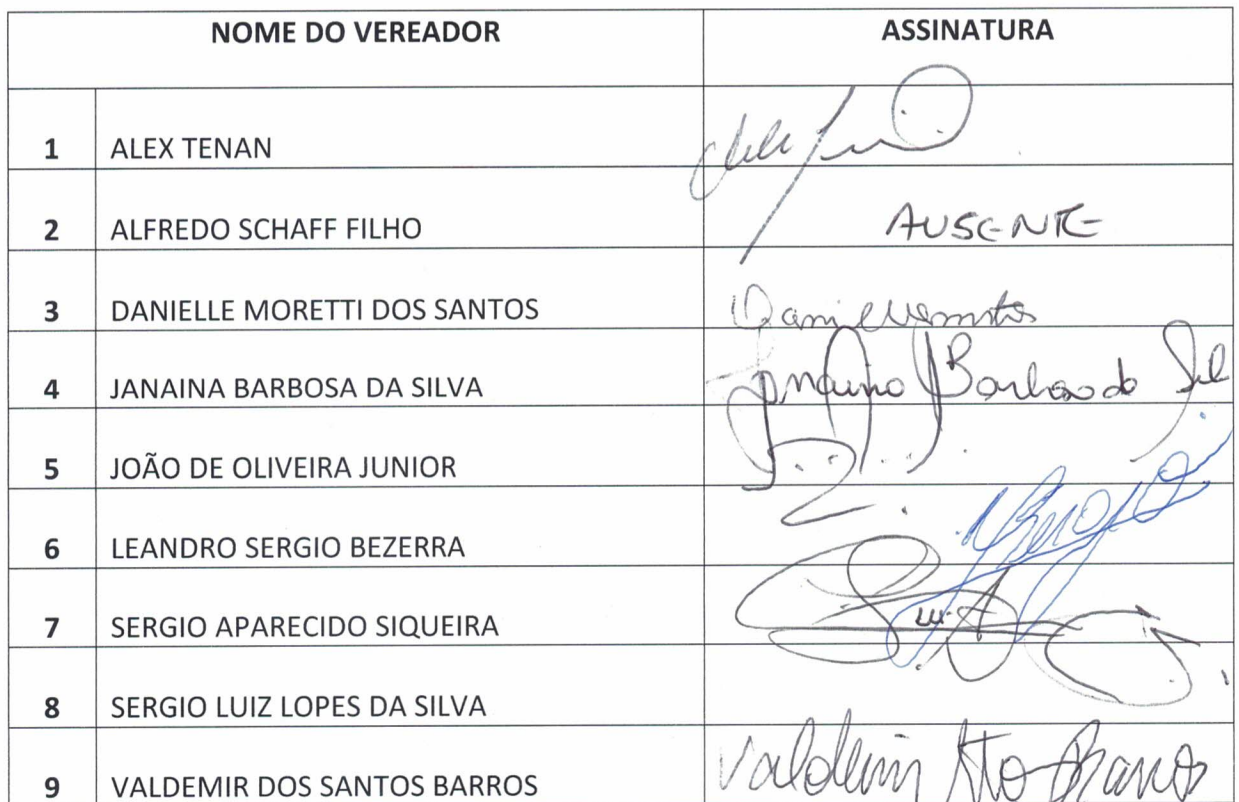 NOME DO VEREADOR ASSINATURA
1 ALEX TENAN
2 ALFREDO SCHAFF FILHO AUSENTE
3 DANIELLE MORETTI DOS SANTOS
4 JANAINA BARBOSA DA SILVA Barbosa da Sil
5 JOÃO DE OLIVEIRA JUNIOR
6 LEANDRO SERGIO BEZERRA
7 SERGIO APARECIDO SIQUEIRA
8 SERGIO LUIZ LOPES DA SILVA
9 VALDEMIR DOS SANTOS BARROS Valdemir Sto Barros